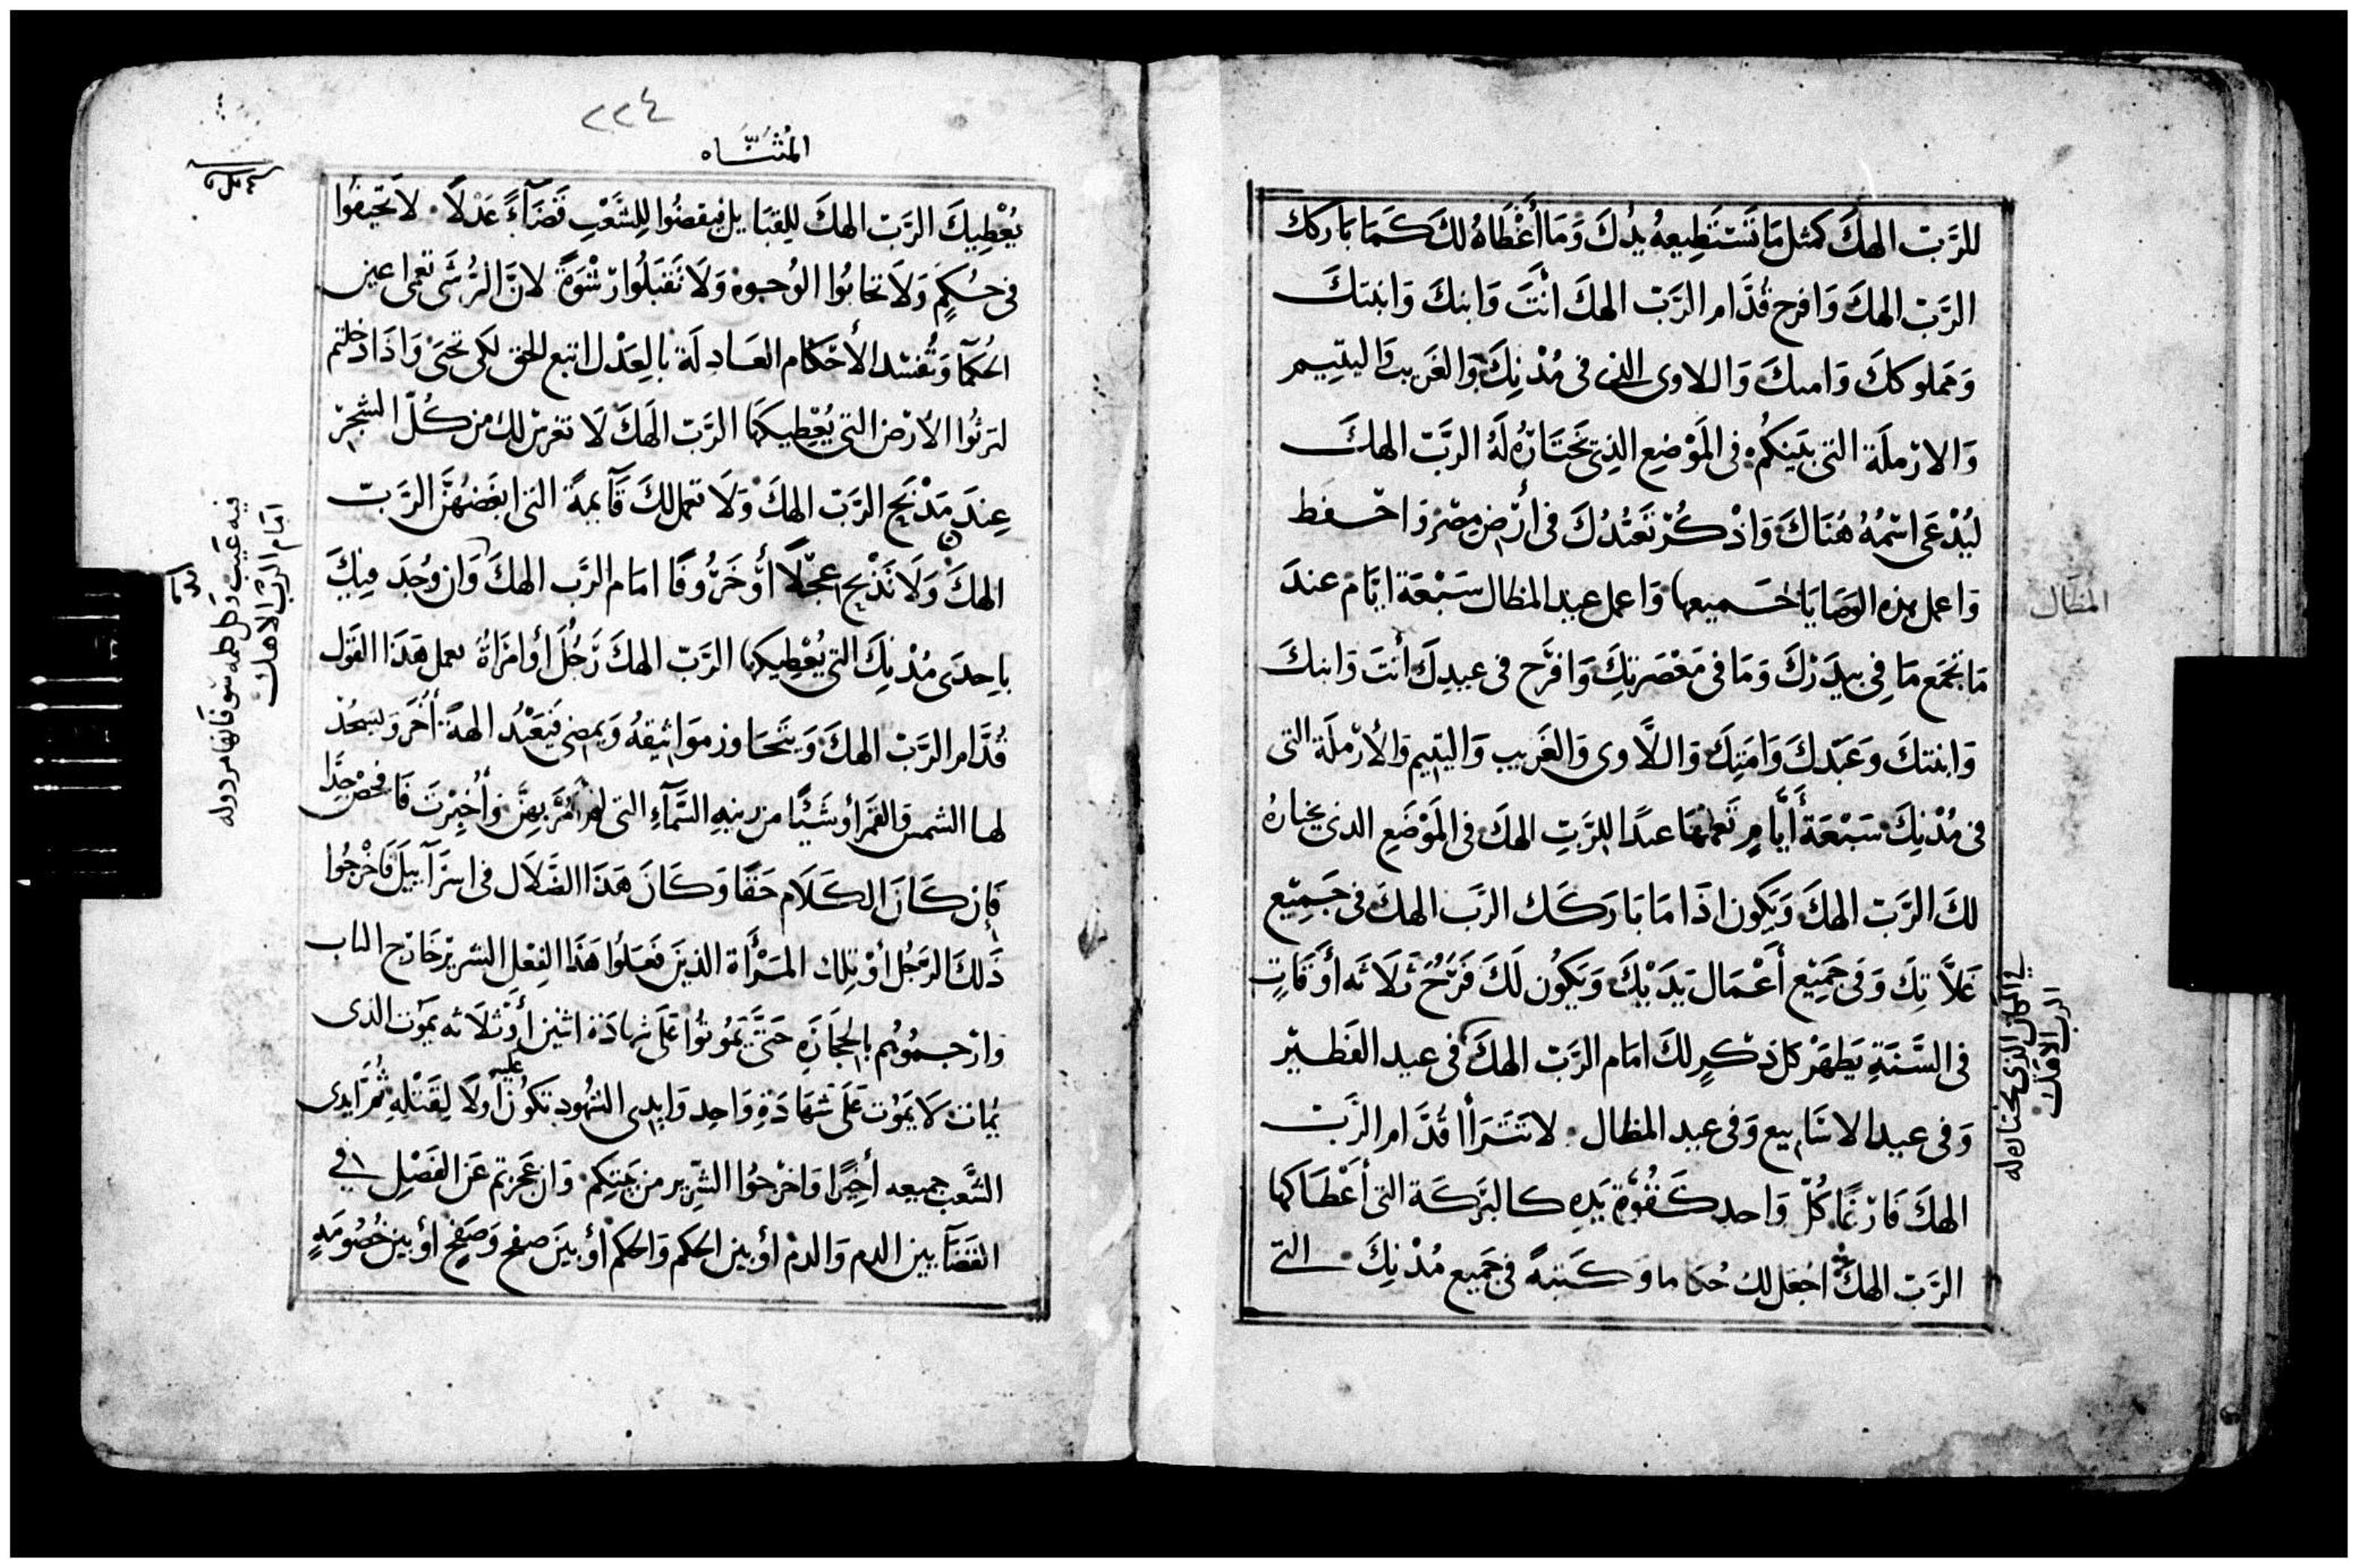 للرَّبّ الهكَ كمثل مَا تَسْتَطِيعهُ يدُكَ وَمَا أَعْطَاهُ لكَ كَمَا بَارَكك
الرَّبّ الهكَ وَافرح قُدَّام الرَّبّ الهكَ انْتَ وَابنكَ وَابنتكَ
وَمَملوككَ وَامتكَ وَاللاوى الذى فى مُدْنِكَ وَالغَريب وَاليتِيم
وَالارْملَة التى بَيْنكُم فى المَوْضِع الذِى يَختَارُهُ لَهُ الرَّبّ الهكَ
ليُدْعَى اسْمُهُ هُنَاكَ وَاذْكُرْ تَعَبُّدُكَ فى أَرْض مِصْر وَاحْفظ
وَاعمل هذه الوَصَايَا جَميعها وَاعمل عيد المظال سَبْعَة ايَّام عندَ
مَا تجمَع مَا فِى بيدَرْكَ وَمَا فى مَعْصَرتِكَ وَافرَح فى عيدِكَ أَنتَ وَابنكَ
وَابنتكَ وَعَبْدكَ وَامَتِكَ وَاللَّاوى وَالغَريب وَاليتيم وَالأرْملَة التى
فى مُدْنِكَ سَبْعَة أَيَّامٍ تَعملهَا عيدًا للرَّبّ الهكَ فى المَوْضَع الذى يختارهُ
لكَ الرَّبّ الهكَ وَيَكون اذَا مَا بَارَكَك الرَّب الهكَ فى جَمِيْع
غَلَّاتِكَ وَفى جَمِيْع أَعْمَال يَدَيْكَ وَيَكُون لَكَ فَرَحٌ ثَلَاثَه أَوقَاتٍ
فى السَّنَةِ يَظهَرْ كل ذكَرٍ لكَ امَام الرَّبّ الهكَ فى عيد الفَطيْر
وَفى عيد الاسَابيع وَفى عيد المظال لا تَتَرَاأ قُدَّام الرَّبّ
الهكَ فَارْغًا كُلّ وَاحد كَقُوَّة يَدِهِ كالبَرَكَة التى أَعْطَاكها
الرَّبّ الهكَ اجْعَل لكَ حُكاما وَكَتبهً فى جَميع مُدْنِكَ التى
المظال
فى المكان الذى يختاره له
الرب الاهك
٢٢٤
المُثنَّاه
يُعْطِيكَ الرَّبّ الهكَ للِقبَايل فيقضُوا لِلشَّعْبِ قَضَآءً عَدْلًا لَا تَحيفُوا
فى حُكمٍ وَلَا تحابُوا الوُجوه وَلَا تَقبَلُوا رَشْوَةً لانَّ الرُّشَى تعمى اعين
الحُكمآ وَتُفسْد الأحْكام العَادلَة بالعَدْل اتبع الحق لكى تحيَى وَاذَا دَخلتم
لترثُوا الأَرْض التى يُعْطيكهَا الرَّبّ الَهكَ لَا تغرسْ لك من كُلّ الشجرْ
عِندَ مَذْبَح الرَّبّ الهكَ وَلَا تعمل لكَ قَآيمةً التى ابغَضهُنَّ الرَّبّ
الهكَ وَلَا تَذْبح عجْلًا أَو خَرُوفًا امَام الرَّب الهكَ وَان وُجدَ فيكَ
باحِدَى مُدْنِكَ التى يُعْطِيكها الرَّبّ الهكَ رَجُلَ أو امْرَاةً يعمل هَذَا القَوْل
قُدَّام الرَّبّ الهكَ وَيتَجَاوز موَاثيقهُ وَيمضى فيَعْبُد الهةً أُخَرَ وَيسجُدْ
لهاَ الشمس وَالقَمَر أو شَيْئًا من زينهِ السَّمَآءِ التى لم آمُرْ بهِنَّ وَأُخبِرْتَ فَافحَصْ جِدًّا
فَإن كَانَ الكَلَام حَقًا وَكَانَ هَذَا الضَّلَال فى اسرَآييلَ فَاخْرِجُوا
ذَلكَ الرَجُل أوْ تِلكَ المَرْأَة الذينَ فَعَلُوا هَذَا الفِعْلِ الشريرْ خَارْج الباب
وَارْجمُوهُم بالحِجَارَةِ حَتَّى يَمُوتُوا عَلَى شهادَة اثنين أوْ ثلَاثه يَموت الذى
يُمات لَا يَمُوت عَلَى شَهَادَةِ وَاحِد وَايدِى الشهُود تكُون عليه أولًا لِقَتْلِهِ ثُمَّ ايدى
الشَّعب جميعه أَخيرًا وَاخْرجُوا الشِّرير من بَينكِم وَان عَجزتم عَن الفَصْلِ فى
القَضَآ بين الدم وَالدمْ أو بين الحكم وَالحكمْ أو بيْنَ صفح وَصَفحٍ أو بين خُصُومَهٍ
فيه عَيب وكل كلمه سو فانها مردوله
امَام الربّ الاهك